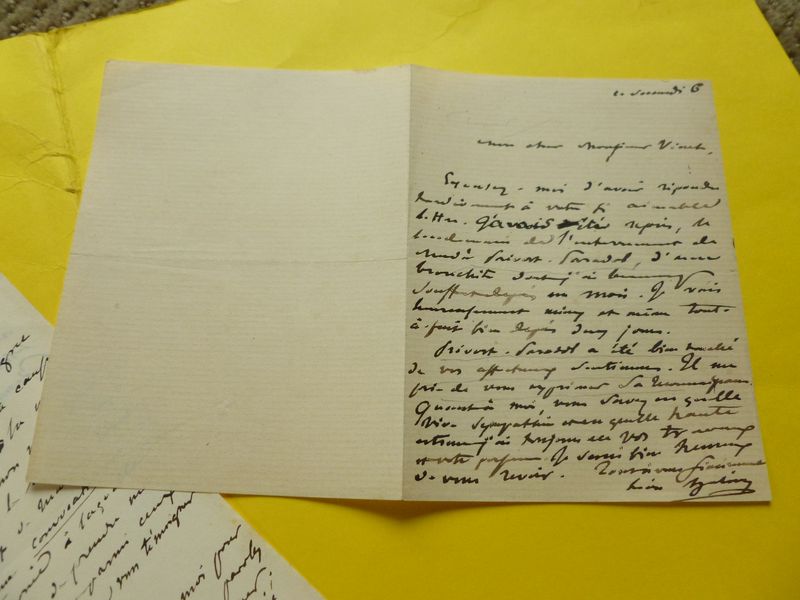 Samedi 6
mon cher Monsieur Vinet,
Excusez-moi d'avoir répondu
tardivement à votre si aimable
lettre. J'avais été repris, le
lendemain de l'enterrement de
Prévost-Paradol, d'une
bronchite dont j'ai beaucoup
souffert depuis un mois. Je vais
heureusement mieux et même tout-
à-fait bien depuis deux jours.
Prévost-Paradol a été bien touché
de vos affectueux sentiments. Il me
prie de vous exprimer sa reconnaissance.
Quant à moi, vous savez en quelle
vive sympathie et en quelle haute
estime j'ai toujours eu vos travaux
et votre personne. Je serai bien heureux
de vous revoir. Tout à vous
à cause
conversation
prendre
parmi ceux
vos témoignages
moi pour
paroles